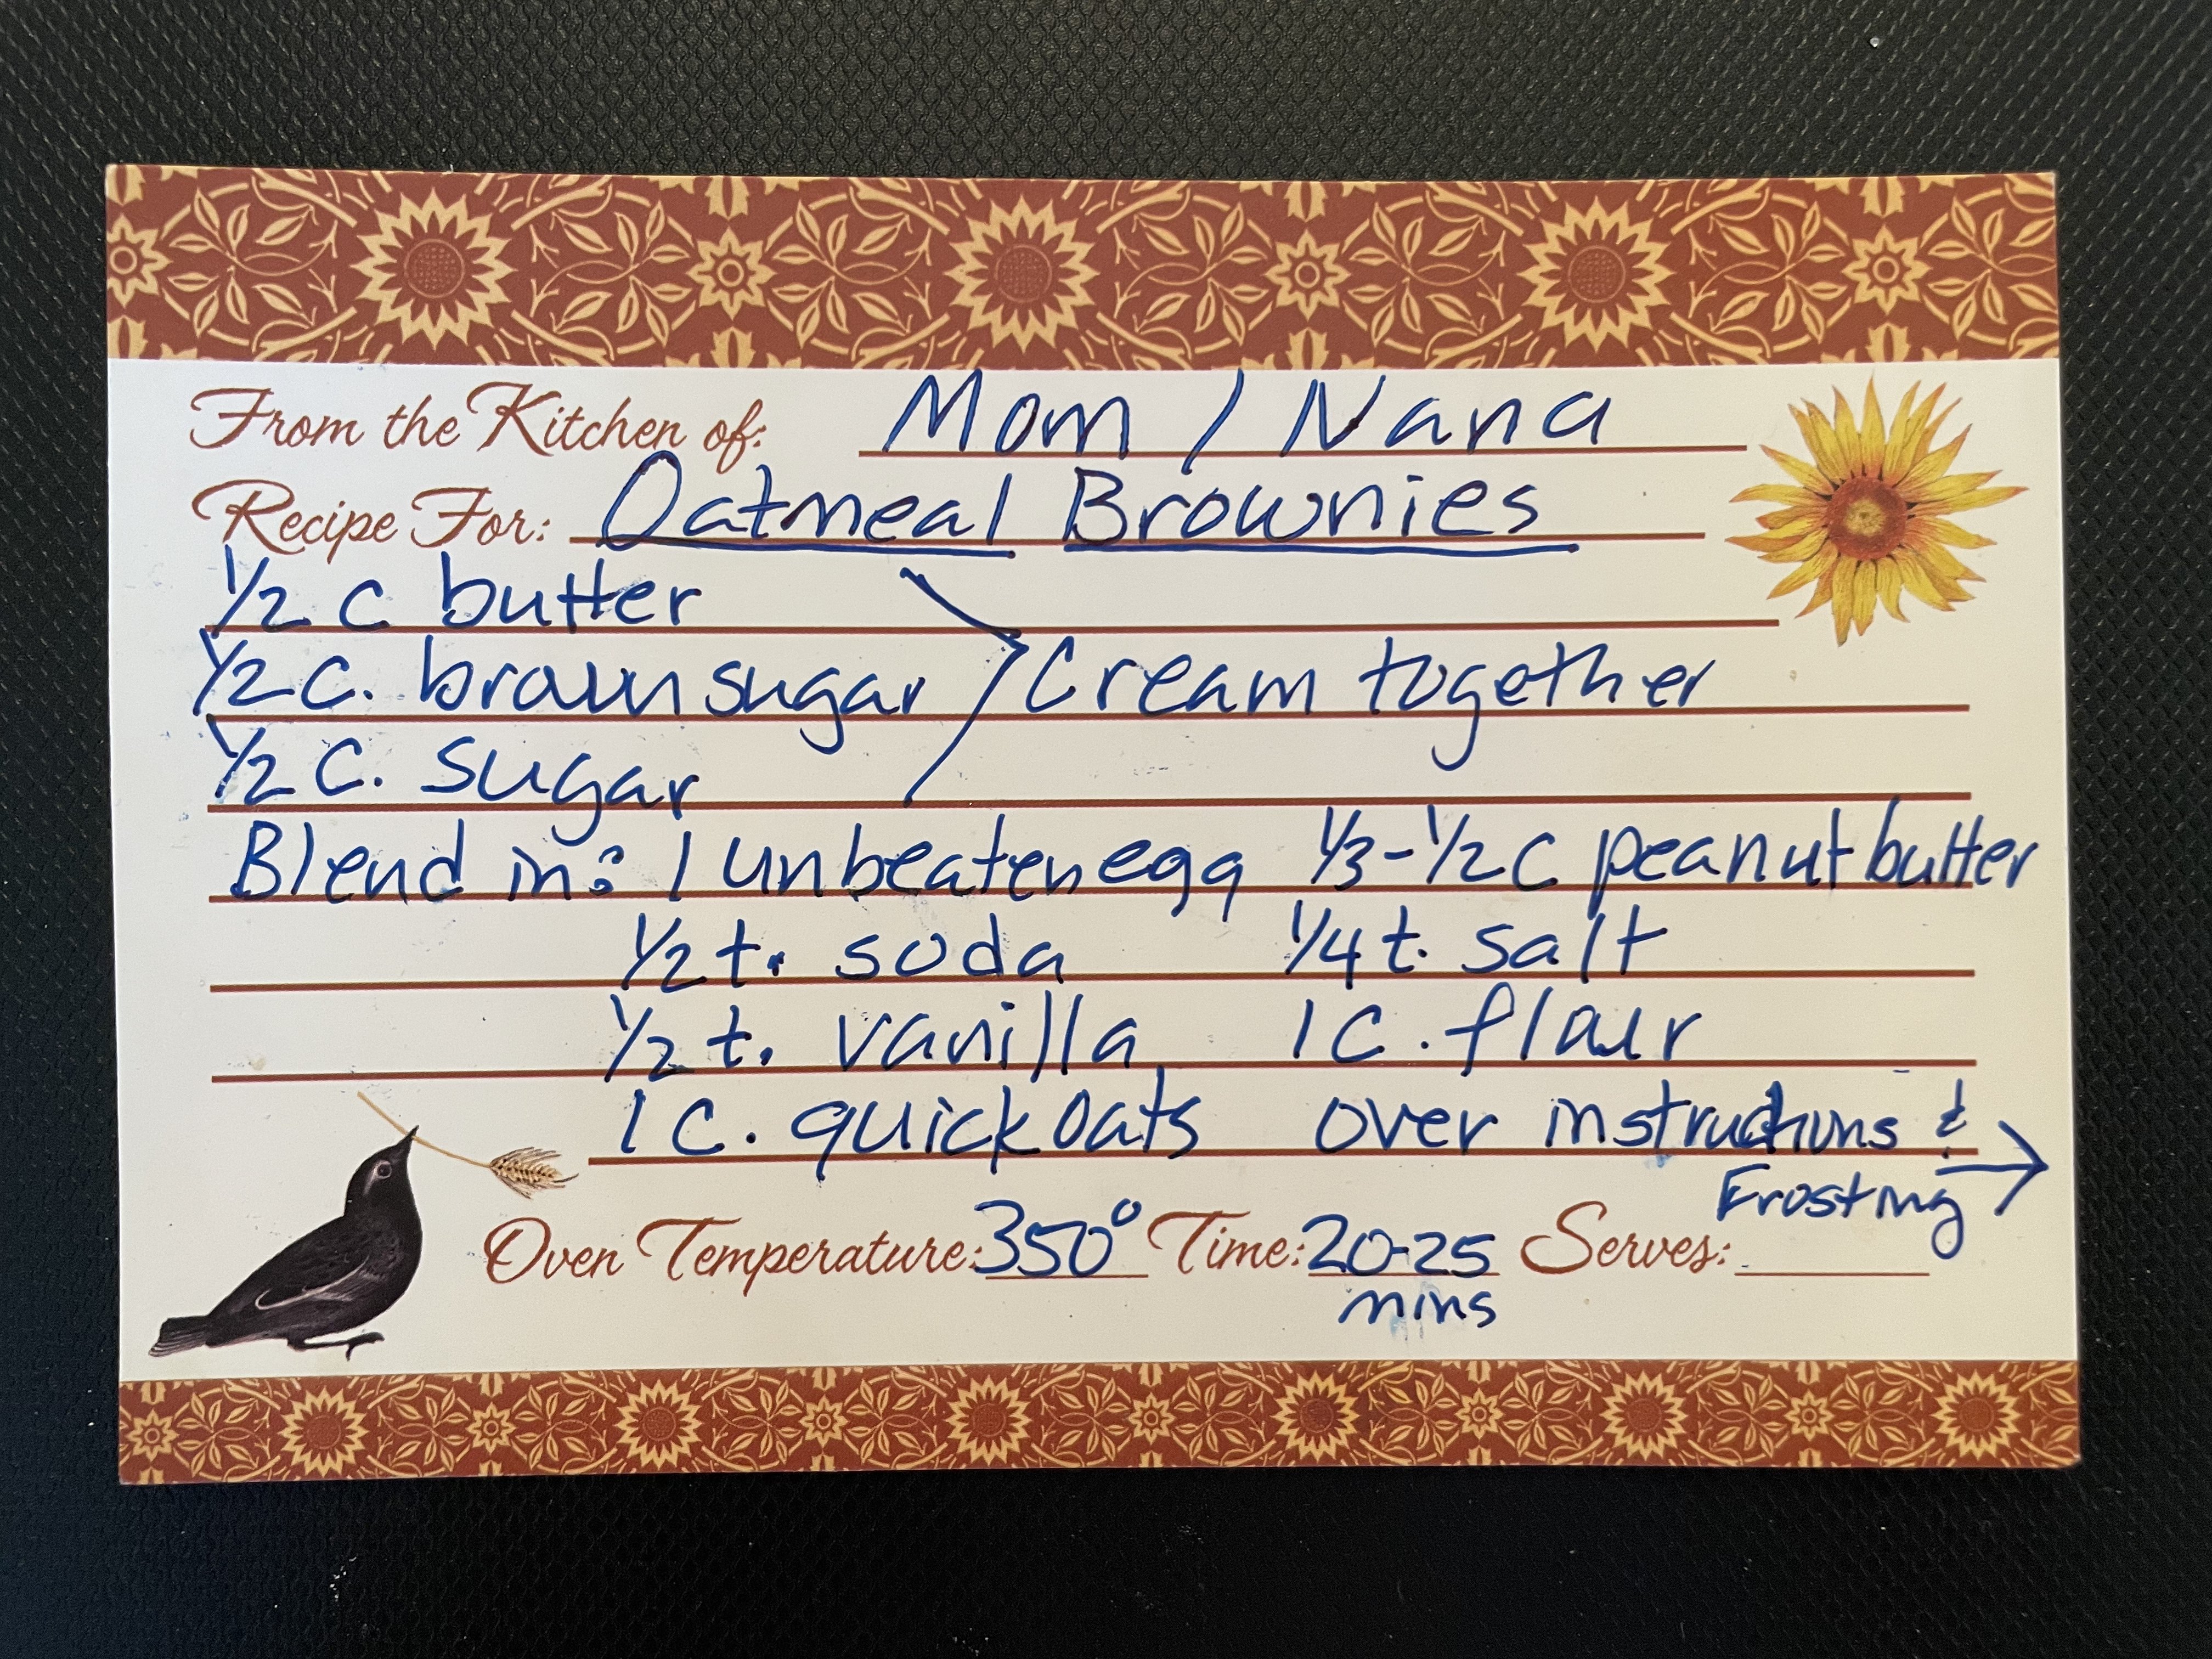 From the Kitchen of: Mom / Nana
Recipe For: Oatmeal Brownies
1/2 c butter
1/2 c. brown sugar > Cream together
1/2 c. sugar
Blend in: 1 unbeaten egg 1/3-1/2 c peanut butter
1/2 t. soda 1/4 t. salt
1/2 t. vanilla 1 c. flour
1 c. quick oats over instructions & →
Frosting
Oven Temperature: 350° Time: 20-25 Serves:
mins